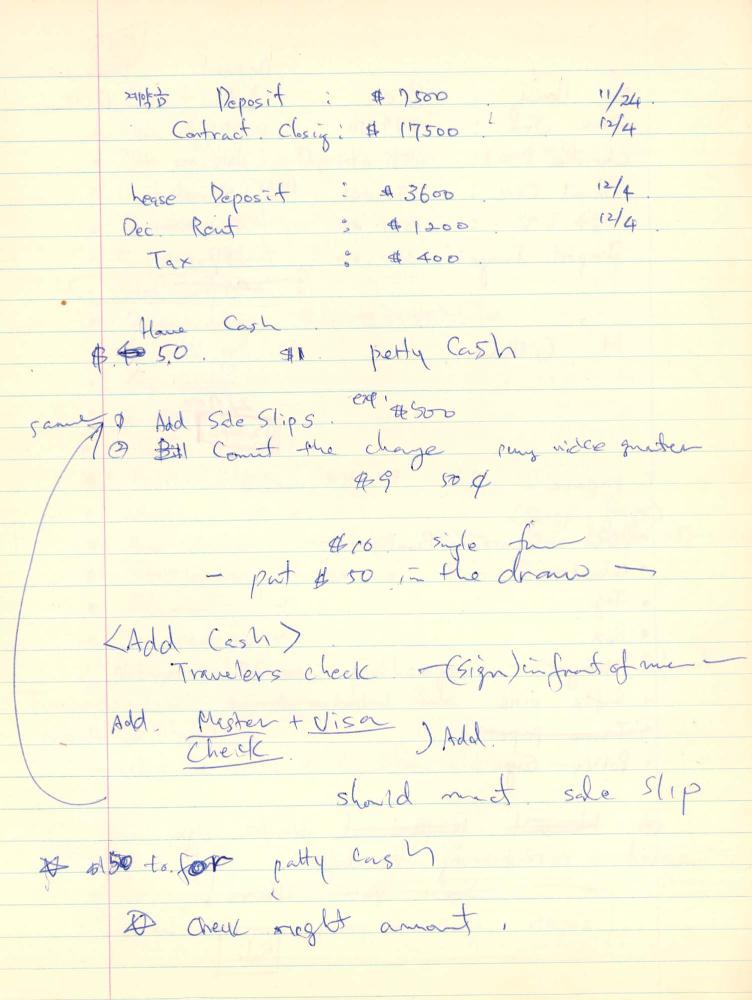 계약금 Deposit : $ 7500 11/24.
Contract. Closig : $ 17500 12/4
Lease Deposit : $ 3600 12/4
Dec. Rent : $ 1200 12/4
Tax : $ 400
Have Cash
$ 50. $1 petty Cash
same ① Add Sale Slips. ex: $500
② Count the change penny nickle quarter
$9 50 ¢
$10 single
- put $ 50 in the draw -
<Add Cash>
Travelers check - (sign) in front of me -
Add. Master + Visa ) Add.
Check
should meet sale slip
50 to for patty cash
check right amount.